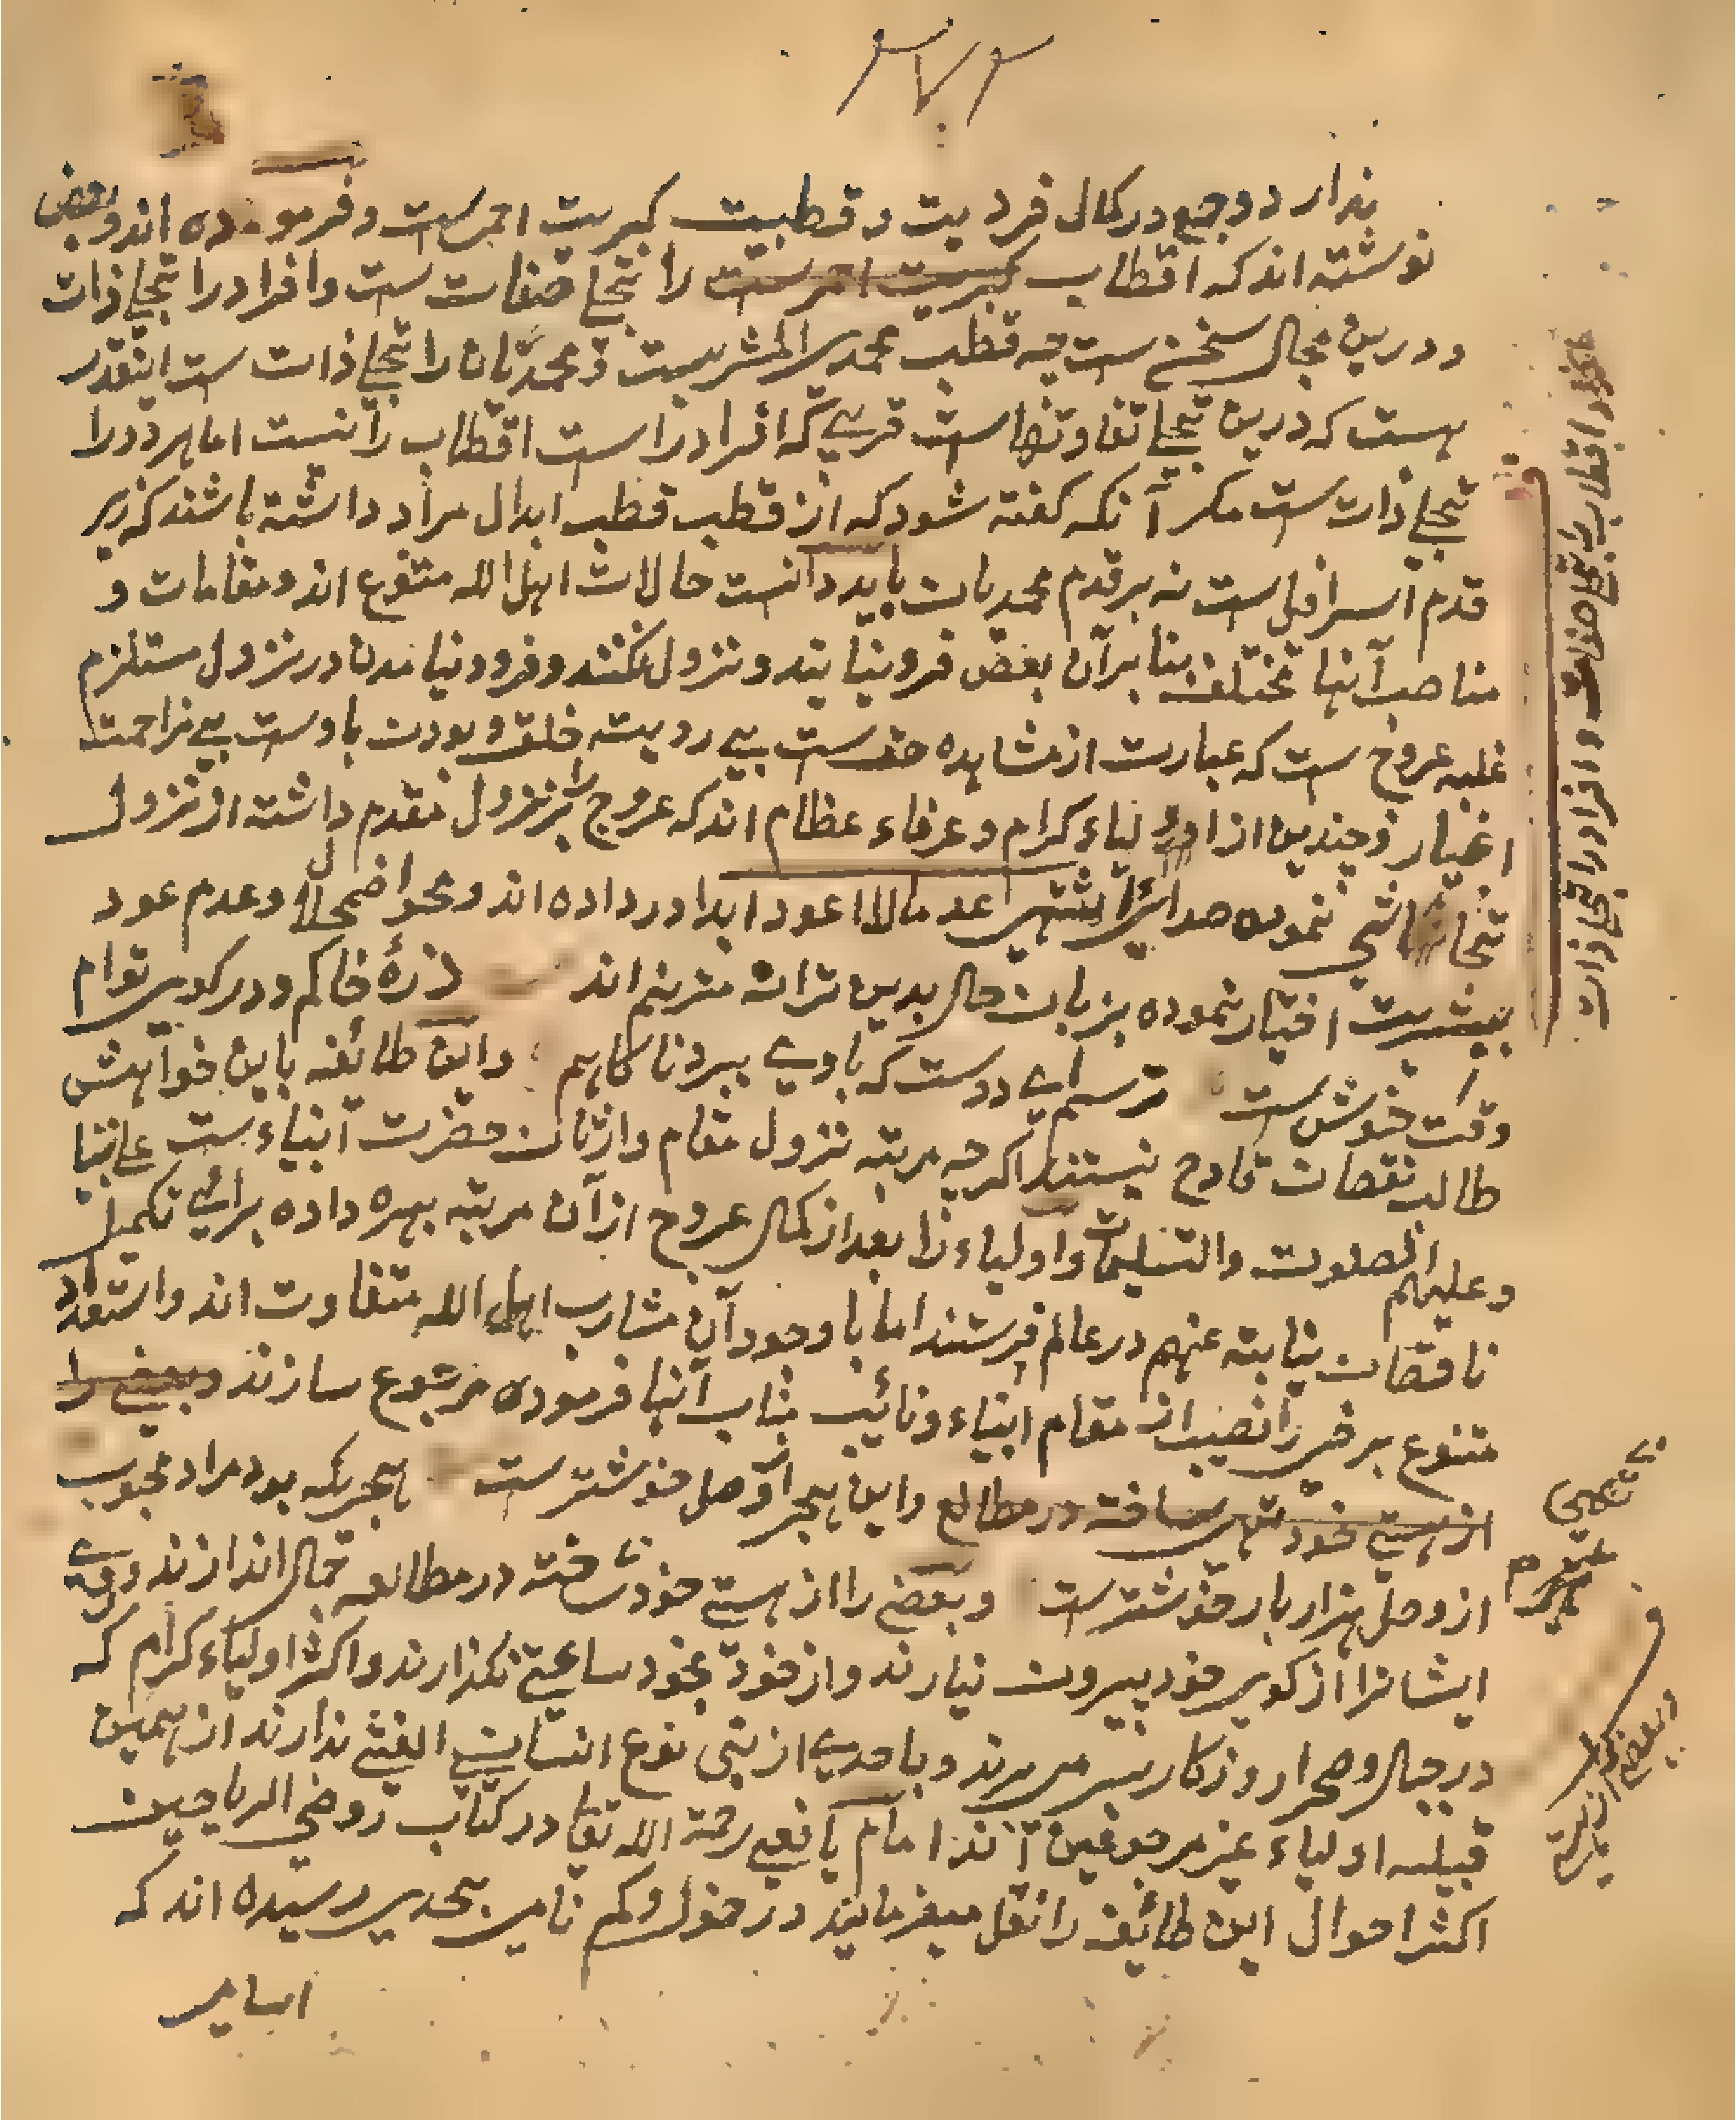 ۴۷۴
ندارد و جمع در کمال فردیت و قطبیت کبریت احمرست و فرموده اند و بعض
نوشته اند که اقطاب کبریت احمرست را تجلے صفات ست و افراد را تجلے ذات
و درین مجال سخن ست چه قطب محمدی المشربست و محمدیان را تجلے ذات ست اینقدر
هست که درین تجلے تفاوتهاست قربے که افراد را است اقطاب را نیست اما هر دو را
تجلے ذات ست مکر آنکه کفته شود که از قطب قطب ابدال مراد داشته باشند که زیر
قدم اسرافیل ست نه بر قدم محمدیان باید دانست حالات اهل الله متنوع اند و مقامات و
مناصب آنها مختلف بنا بر آن بعض فرو نیایند و نزول نکنند و فرود نیامدن در نزول مستلزم
غلبه عروج ست که عبارت از مشاهده حق ست بے رویت خلق و بودن باوست بے مزاحمت
اغیار و چندین از اولیاء کرام و عرفاء عظام اند که عروج بر نزول مقدم داشته از نزول
تحاشی نموده صدای اعدما لا اعود ابدا در داده اند و محو اضمحلال و عدم عود
ببشریت اختیار نموده بزبان حال بدین ترانه مترنم اند ذرهٔ خاکم و در کوی توام
وقت خوش ست ترسم اے دوست که بادے ببرد ناکاهم و این طائفه باین خواهش
طالب نقصان قادح نیستند اکرچه مرتبه نزول مقام وارثان حضرت انبیاء ست علی نبینا
و علیهم الصلوت و التسلیمات و اولیاء را بعد از کمال عروج از آن مرتبه بهره داده برائے تکمیل
ناقصان نیابته عنهم در عالم فرستند اما با وجود آن مشارب اهل الله متفاوت اند و استعداد
متنوع برخے را نصیب از مقام انبیاء و نائب مناب آنها فرموده مرجوع سازند و بعضے را
از هستے خود تهی ساخته در مطالع و این هجر از وصل خوشترست هجریکه بود مراد محبوب
از وصل هزار بار خوشترست و بعضے را از هستے خود ساخته در مطالعه جمال اندازند و
ایشانرا از کوی خود بیرون نیارند و از خود بخود ساعتے نکذارند و اکثر اولیاء کرام که
در جبال و صحرا روزکار بسر می برند و با حدے از بنی نوع انسانے الفتے ندارند از همین
قبیله اولیاء غیر مرجوعین اند امام یافعے رحمة الله تعا در کتاب روض الریاحین
اکثر احوال این طائفه را نقل میفرمایند در خمول و کم نامی بحدی رسیده اند که
اسامی
اقطاب را تجلے صفات ست و افراد را تجلے ذات
تهی